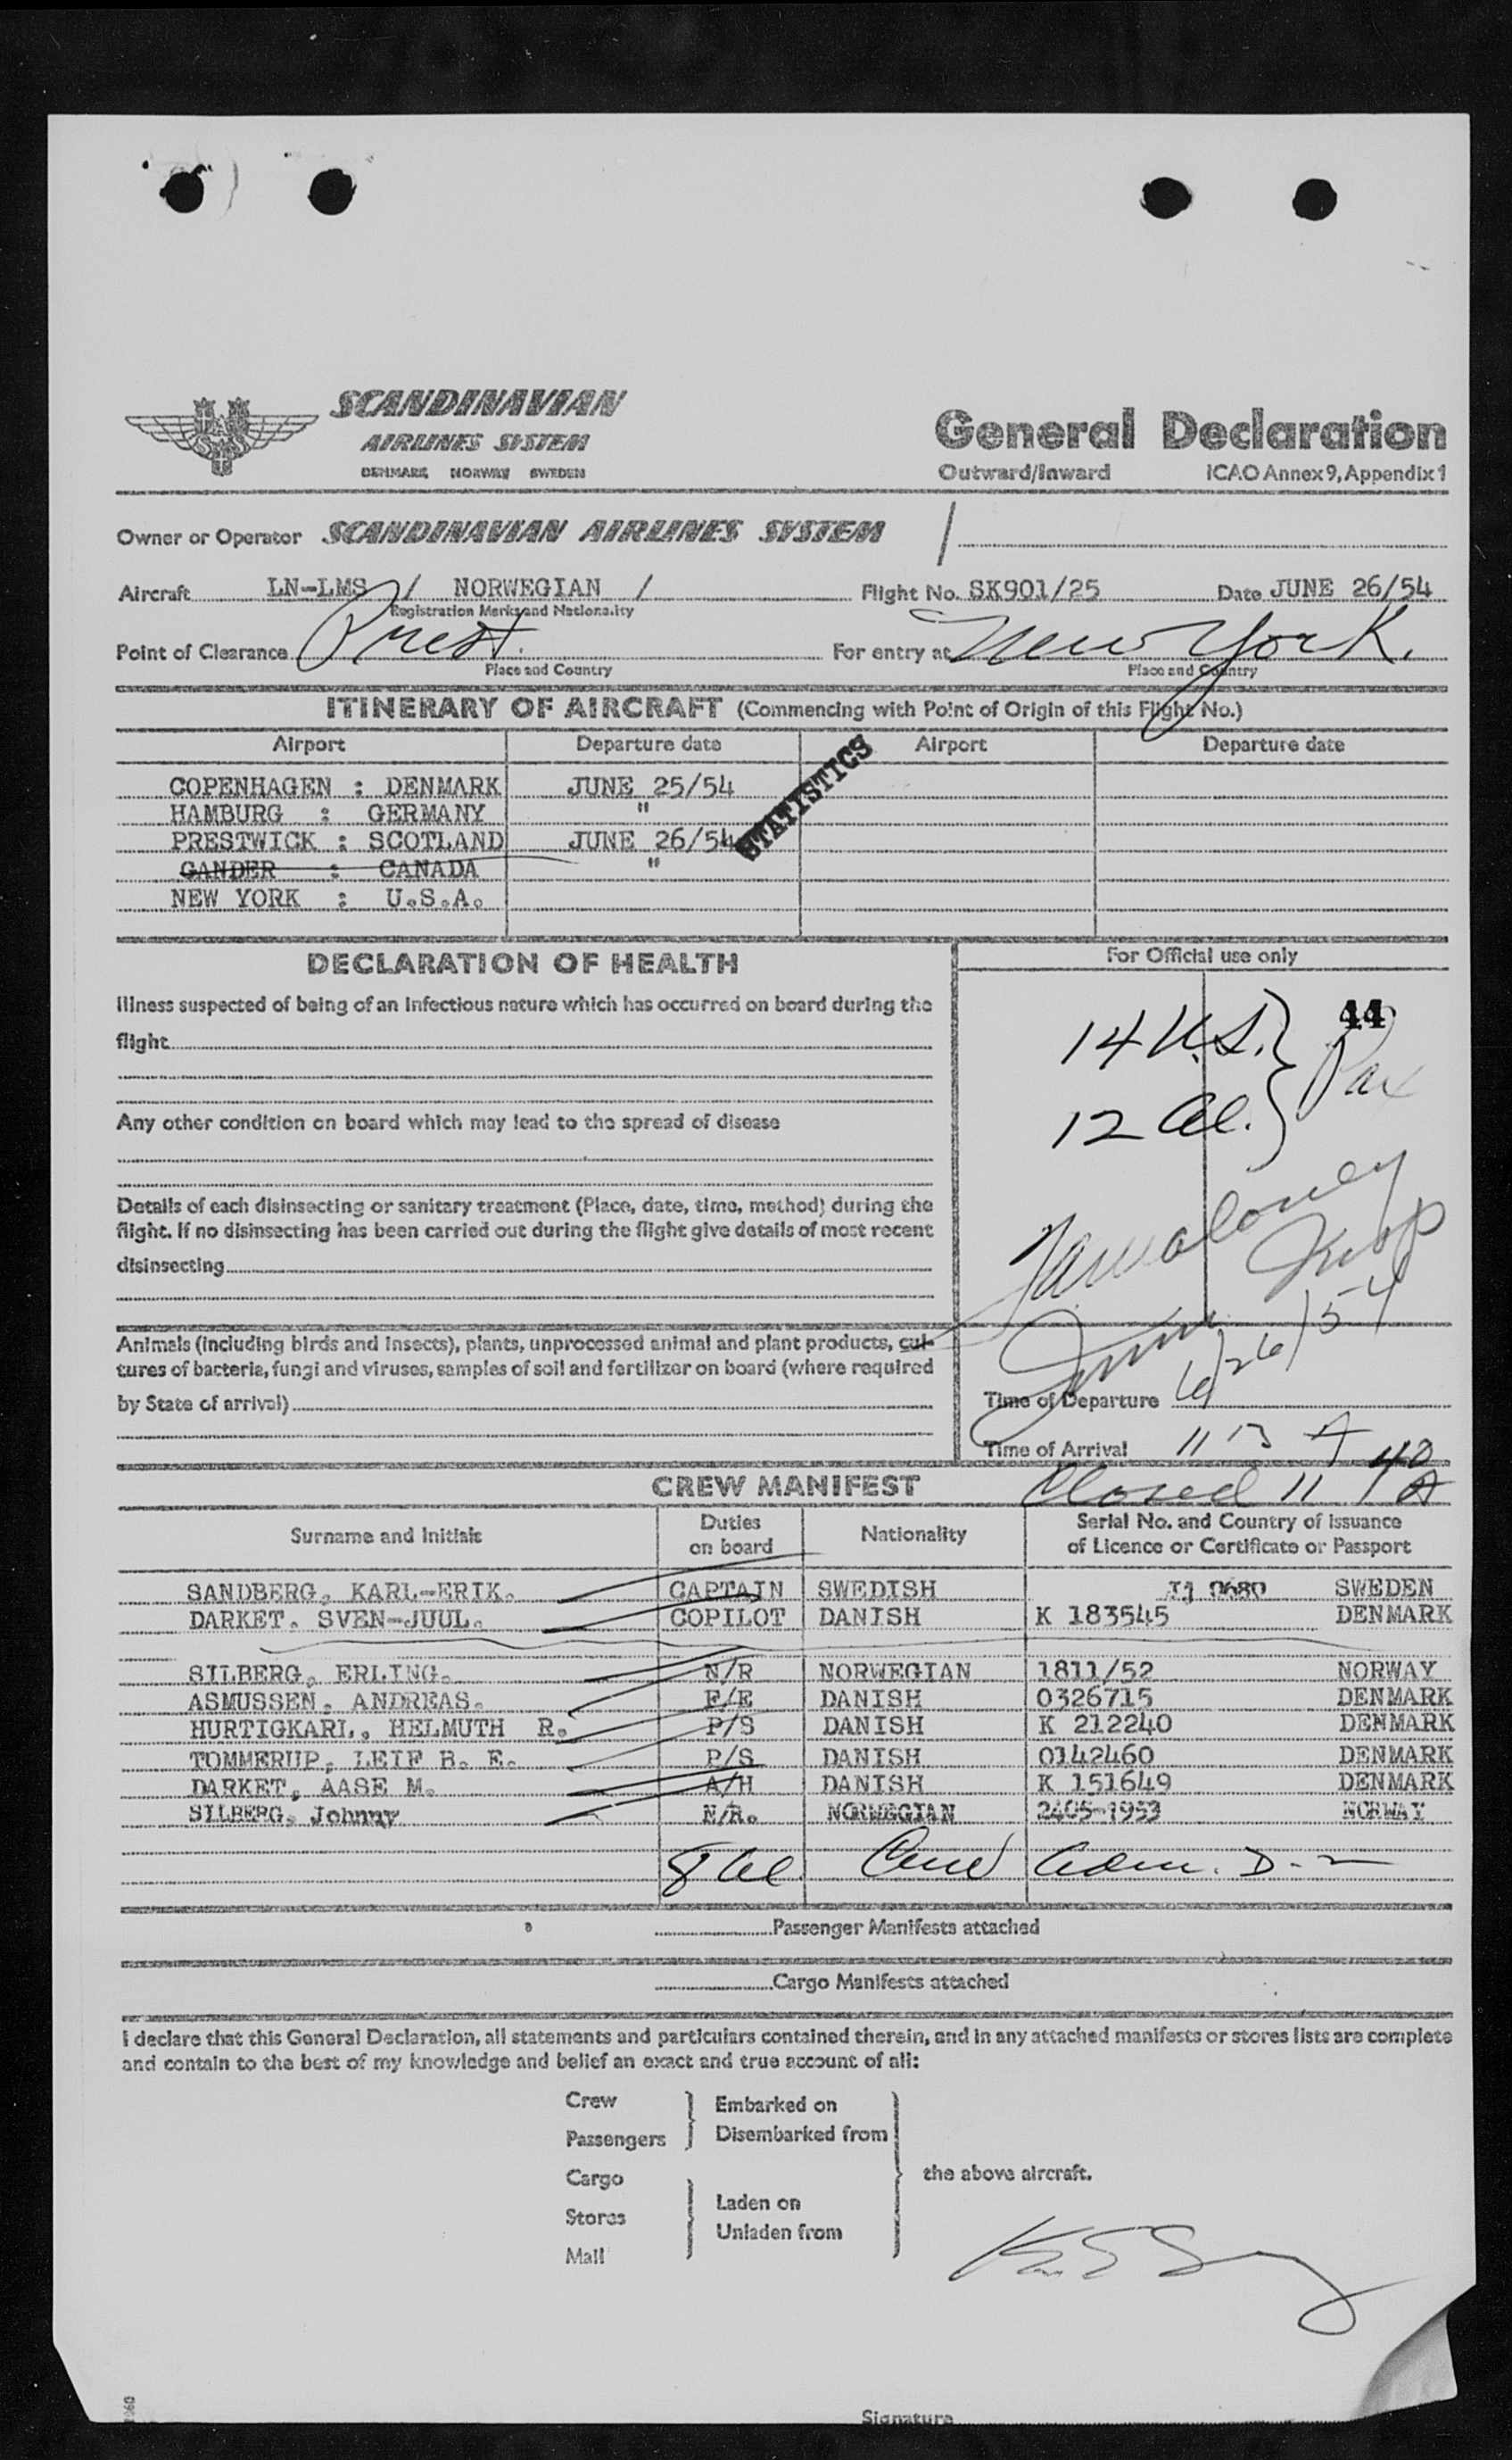 SCANDINAVIAN
AIRLINES SYSTEM
DENMARK NORWAY SWEDEN
General Declaration
Outward/Inward ICAO Annex 9, Appendix 1
Owner or Operator SCANDINAVIAN AIRLINES SYSTEM /
Aircraft LN-LMS / NORWEGIAN / Flight No. SK901/25 Date JUNE 26/54
Registration Marks and Nationality
Point of Clearance Prest. For entry at New York.
Place and Country Place and Country
ITINERARY OF AIRCRAFT (Commencing with Point of Origin of this Flight No.)
Airport Departure date Airport Departure date
COPENHAGEN : DENMARK JUNE 25/54
HAMBURG : GERMANY "
PRESTWICK : SCOTLAND JUNE 26/54
GANDER : CANADA "
NEW YORK : U.S.A.
STATISTICS
DECLARATION OF HEALTH
For Official use only
Illness suspected of being of an infectious nature which has occurred on board during the
flight
Any other condition on board which may lead to the spread of disease
Details of each disinsecting or sanitary treatment (Place, date, time, method) during the
flight. If no disinsecting has been carried out during the flight give details of most recent
disinsecting
Animals (including birds and insects), plants, unprocessed animal and plant products, cul-
tures of bacteria, fungi and viruses, samples of soil and fertilizer on board (where required
by State of arrival)
44
14 U.S. } Pax
12 Al. }
6/26/54
Time of Departure
Time of Arrival 11 13 A
Closed 11 40 A
CREW MANIFEST
Surname and Initials Duties on board Nationality Serial No. and Country of Issuance of Licence or Certificate or Passport
SANDBERG, KARL-ERIK. CAPTAIN SWEDISH 0680 SWEDEN
DARKET. SVEN-JUUL. COPILOT DANISH K 183545 DENMARK
SILBERG, ERLING. N/R NORWEGIAN 1811/52 NORWAY
ASMUSSEN, ANDREAS. F/E DANISH 0326715 DENMARK
HURTIGKARL, HELMUTH R. P/S DANISH K 212240 DENMARK
TOMMERUP, LEIF B. E. P/S DANISH 0142460 DENMARK
DARKET, AASE M. A/H DANISH K 151649 DENMARK
SILBERG, Johnny N/R. NORWEGIAN 2405-1953 NORWAY
8 al Crew Adm. D-2
Passenger Manifests attached
Cargo Manifests attached
I declare that this General Declaration, all statements and particulars contained therein, and in any attached manifests or stores lists are complete
and contain to the best of my knowledge and belief an exact and true account of all:
Crew
Passengers
Embarked on
Disembarked from
Cargo
Stores
Mail
Laden on
Unladen from
the above aircraft.
Signature